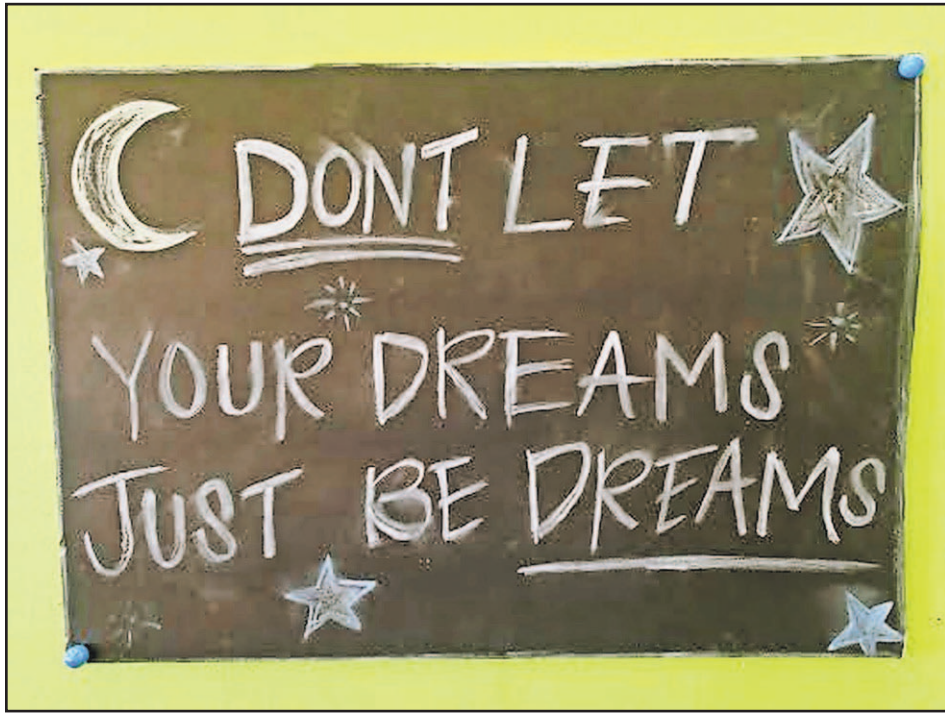 DONT LET
YOUR DREAMS
JUST BE DREAMS